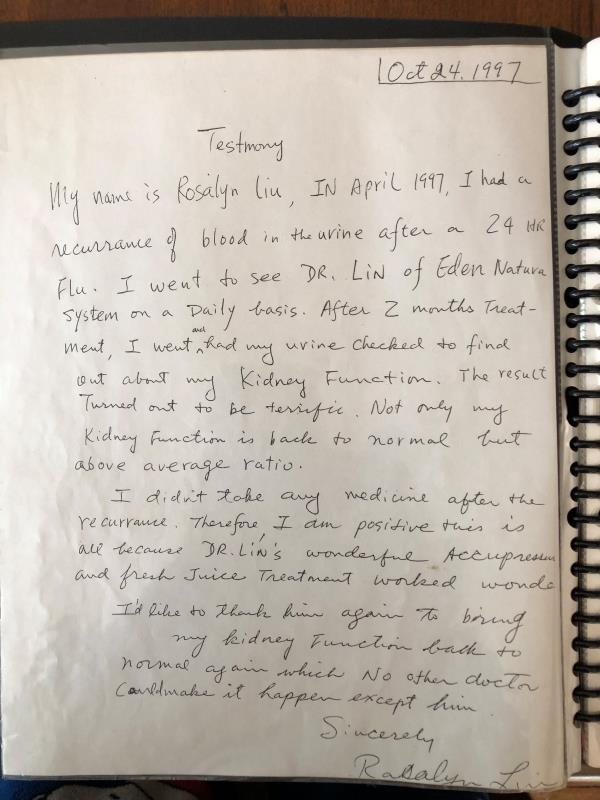 Oct 24. 1997
Testmony
My name is Rosalyn Liu, IN April 1997, I had a
recurrance of blood in the urine after a 24 HR
Flu. I went to see DR. LIN of Eden Natura
System on a Daily basis. After 2 months Treat-
ment, I went and had my urine checked to find
out about my Kidney Function. The result
Turned out to be terrific. Not only my
Kidney Function is back to normal but
above average ratio.
I didn't take any medicine after the
recurrance. Therefore, I am positive this is
all because DR. LIN's wonderful Accupressu
and fresh Juice Treatment worked wonde
I'd like to thank him again to bring
my kidney Function back to
normal again which No other doctor
Could make it happen except him.
Sincerely